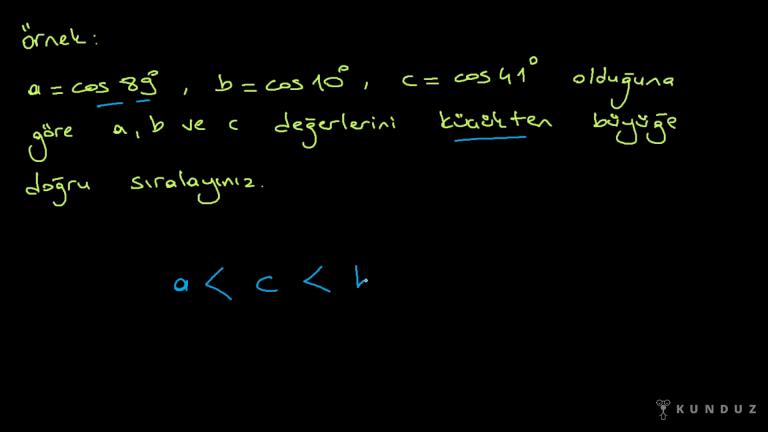 örnek:
a = cos 89°, b = cos 10°, c = cos 41° olduğuna
göre a, b ve c değerlerini küçükten büyüğe
doğru sıralayınız.
a < c <
KUNDUZ